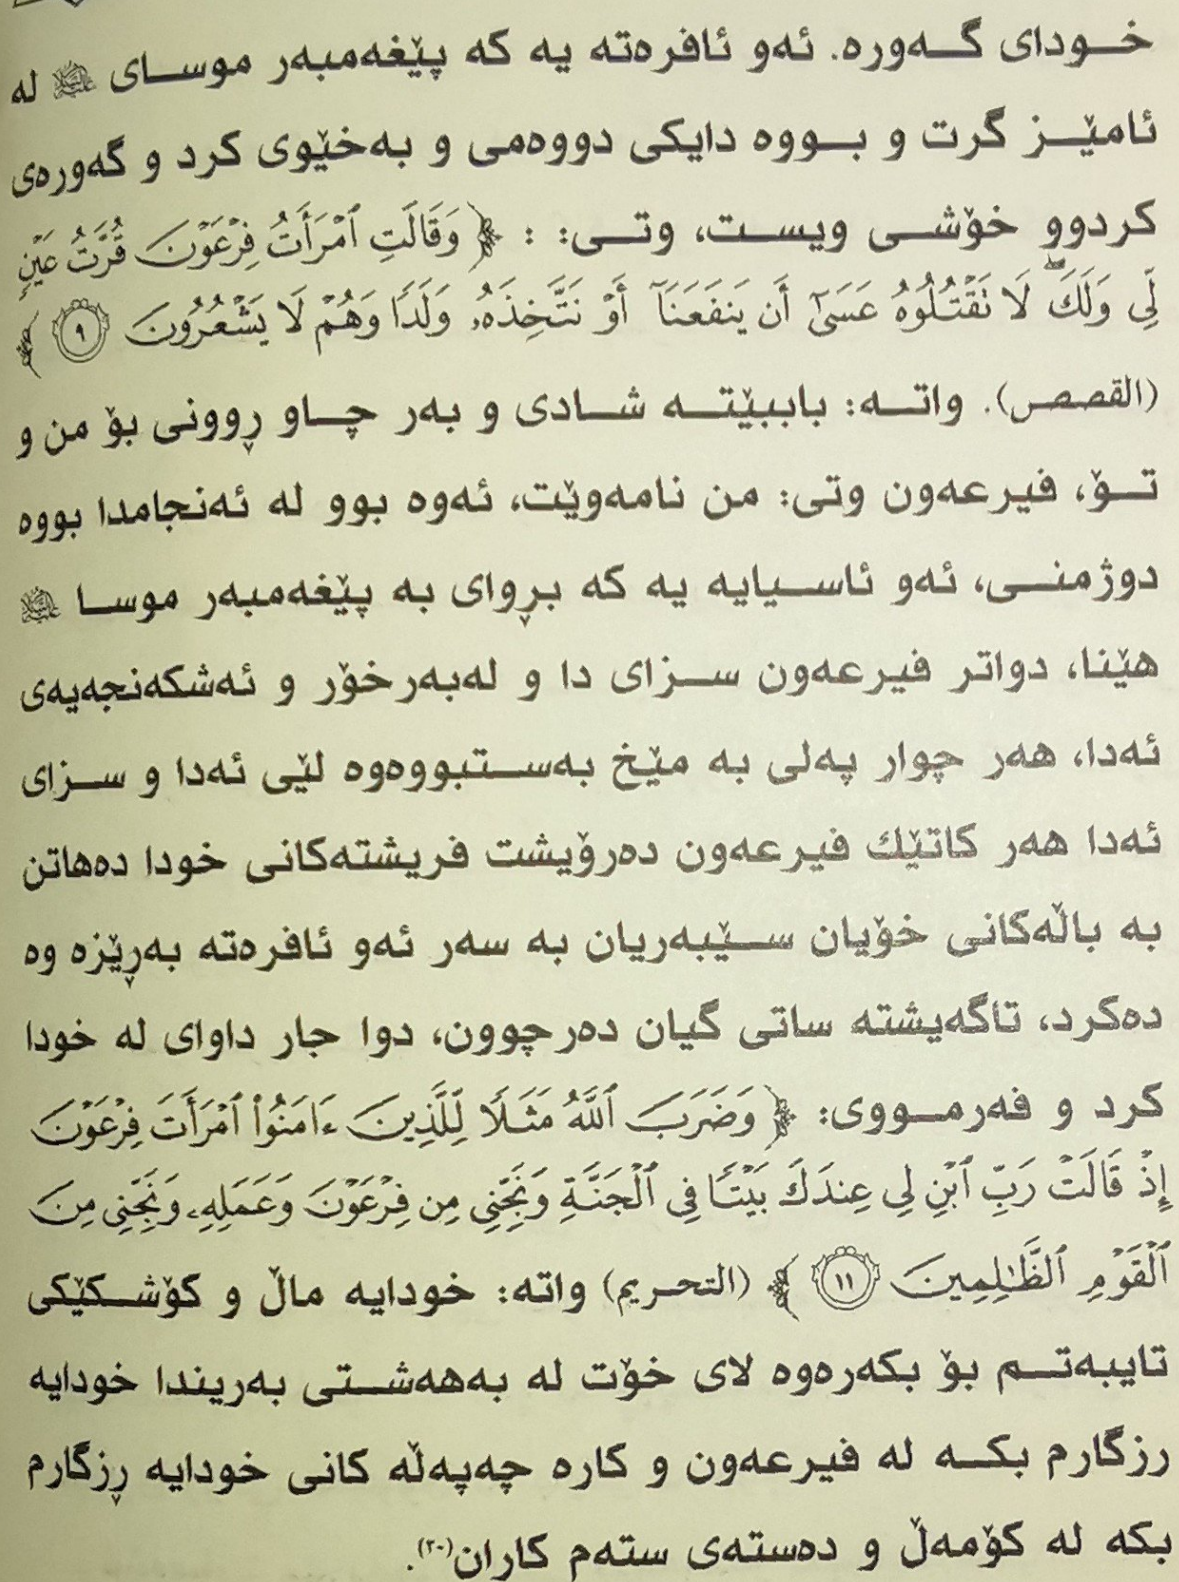 خودای گەورە. ئەو ئافرەتە یە کە پێغەمبەر موسای ﷺ لە
ئامێز گرت و بووە دایکی دووەمی و بەخێوی کرد و گەورەی
کردوو خۆشی ویست، وتی: : ﴿ وَقَالَتِ ٱمْرَأَتُ فِرْعَوْنَ قُرَّتُ عَيْنٍ
لِّي وَلَكَ ۖ لَا تَقْتُلُوهُ عَسَىٰٓ أَن يَنفَعَنَآ أَوْ نَتَّخِذَهُۥ وَلَدًا وَهُمْ لَا يَشْعُرُونَ ٩ ﴾
(القصص). واتە: باببێتە شادی و بەر چاو ڕوونی بۆ من و
تۆ، فیرعەون وتی: من نامەوێت، ئەوە بوو لە ئەنجامدا بووە
دوژمنی، ئەو ئاسیایە یە کە بڕوای بە پێغەمبەر موسا
هێنا، دواتر فیرعەون سزای دا و لەبەرخۆر و ئەشکەنجەیەی
ئەدا، هەر چوار پەلی بە مێخ بەستبووەوە لێی ئەدا و سزای
ئەدا هەر کاتێك فیرعەون دەرۆیشت فریشتەکانی خودا دەهاتن
بە باڵەکانی خۆیان سێبەریان بە سەر ئەو ئافرەتە بەڕێزە وە
دەکرد، تاگەیشتە ساتی گیان دەرچوون، دوا جار داوای لە خودا
کرد و فەرمووی: ﴿ وَضَرَبَ ٱللَّهُ مَثَلًا لِّلَّذِينَ ءَامَنُوا۟ ٱمْرَأَتَ فِرْعَوْنَ
إِذْ قَالَتْ رَبِّ ٱبْنِ لِي عِندَكَ بَيْتًا فِي ٱلْجَنَّةِ وَنَجِّنِي مِن فِرْعَوْنَ وَعَمَلِهِۦ وَنَجِّنِي مِنَ
ٱلْقَوْمِ ٱلظَّٰلِمِينَ ١١ ﴾ (التحريم) واتە: خودایە ماڵ و کۆشکێکی
تایبەتم بۆ بکەرەوە لای خۆت لە بەهەشتی بەریندا خودایە
رزگارم بکە لە فیرعەون و کارە چەپەڵە کانی خودایە ڕزگارم
بکە لە کۆمەڵ و دەستەی ستەم کاران(٢٠).